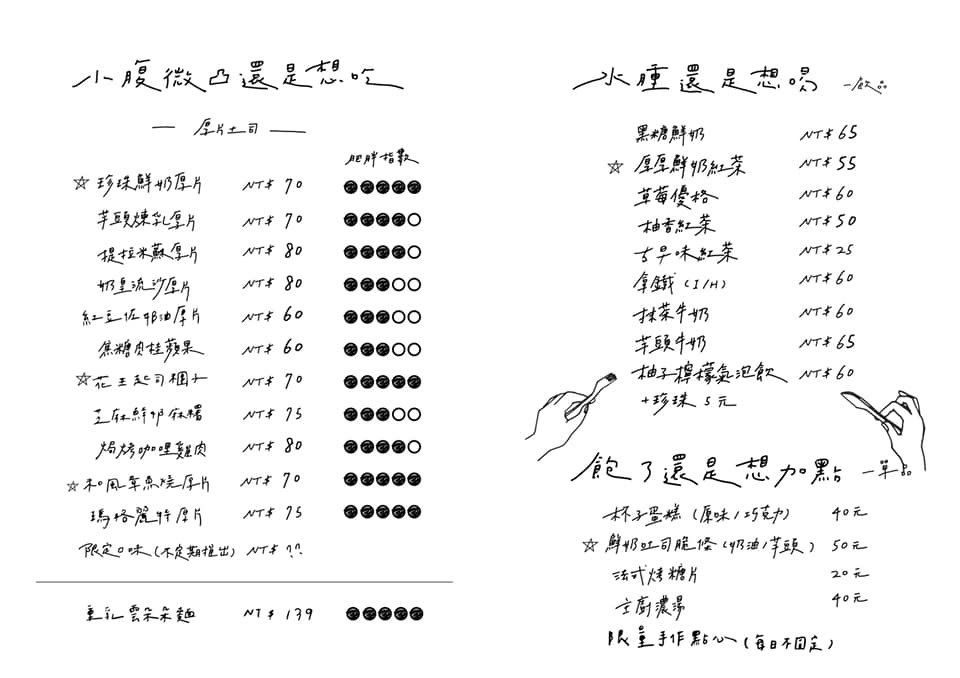 小腹微凸還是想吃
厚片土司
肥胖指數
☆ 珍珠鮮奶厚片 NT$ 70
芋頭煉乳厚片 NT$ 70
提拉米蘇厚片 NT$ 80
奶皇流沙厚片 NT$ 80
紅豆佐奶油厚片 NT$ 60
焦糖肉桂蘋果 NT$ 60
☆ 花生起司棉花 NT$ 70
芝麻鮮奶麻糬 NT$ 75
焗烤咖哩雞肉 NT$ 80
☆ 和風章魚燒厚片 NT$ 70
瑪格麗特厚片 NT$ 75
限定口味(不定期推出) NT$ ??
重乳雲朵朵麵 NT$ 139
水腫還是想喝 一飲品
黑糖鮮奶 NT$ 65
☆ 厚厚鮮奶紅茶 NT$ 55
草莓優格 NT$ 60
柚香紅茶 NT$ 50
古早味紅茶 NT$ 25
拿鐵 (I/H) NT$ 60
抹茶牛奶 NT$ 60
芋頭牛奶 NT$ 65
柚子檸檬氣泡飲 NT$ 60
+珍珠 5元
飽了還是想加點 一單品
杯子蛋糕 (原味/巧克力) 40元
☆ 鮮奶吐司脆條 (奶油/芋頭) 50元
法式烤糖片 20元
主廚濃湯 40元
限量手作點心 (每日不固定)